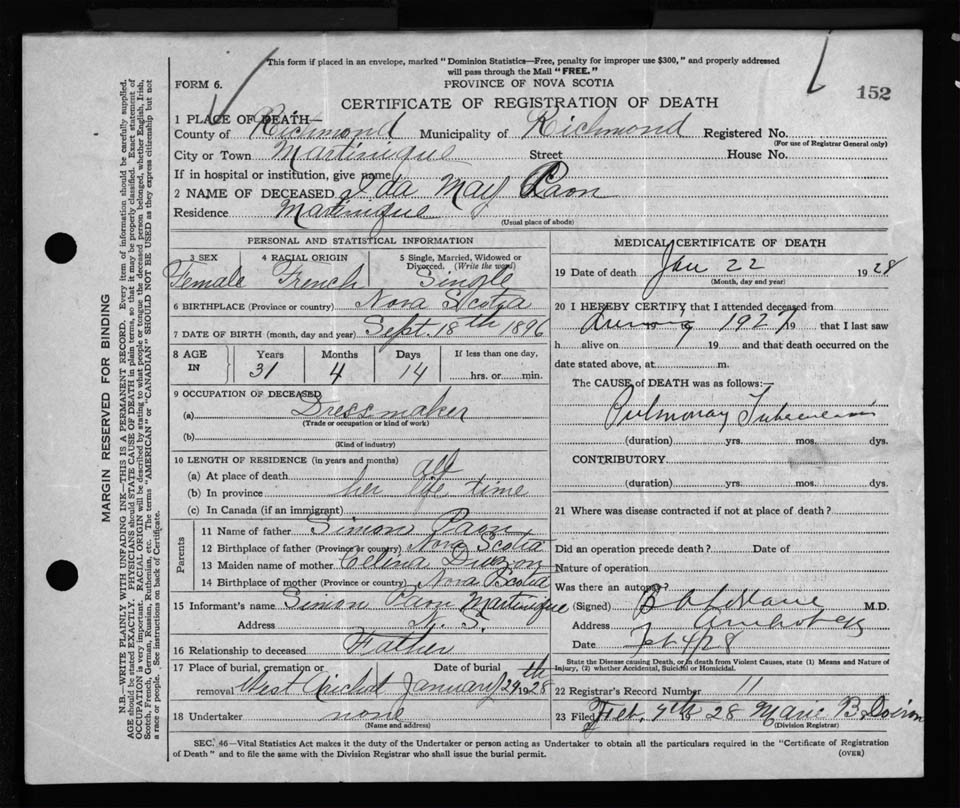 This form if placed in an envelope, marked "Dominion Statistics—Free, penalty for improper use $300," and properly addressed
will pass through the Mail "FREE."
FORM 6.
PROVINCE OF NOVA SCOTIA
152
CERTIFICATE OF REGISTRATION OF DEATH
1 PLACE OF DEATH—
County of Richmond Municipality of Richmond Registered No.
(For use of Registrar General only)
City or Town Martinique Street House No.
If in hospital or institution, give name
2 NAME OF DECEASED Ida May Paon
Residence Martinique
(Usual place of abode)
PERSONAL AND STATISTICAL INFORMATION
3 SEX 4 RACIAL ORIGIN 5 Single, Married, Widowed or Divorced. (Write the word)
Female French Single
6 BIRTHPLACE (Province or country) Nova Scotia
7 DATE OF BIRTH (month, day and year) Sept. 18th 1896
8 AGE IN Years Months Days If less than one day,
31 4 14 hrs. or min.
9 OCCUPATION OF DECEASED
(a) Dressmaker
(Trade or occupation or kind of work)
(b)
(Kind of industry)
10 LENGTH OF RESIDENCE (in years and months)
(a) At place of death all
(b) In province her life time
(c) In Canada (if an immigrant)
Parents
11 Name of father Simon Paon
12 Birthplace of father (Province or country) Nova Scotia
13 Maiden name of mother Celina
14 Birthplace of mother (Province or country) Nova Scotia
15 Informant's name Simon Paon Martinique
Address N. S.
16 Relationship to deceased Father
17 Place of burial, cremation or removal West Arichat Date of burial January 24th 1928
18 Undertaker none
(Name and address)
MEDICAL CERTIFICATE OF DEATH
19 Date of death Jan 22 1928
(Month, day and year)
20 I HEREBY CERTIFY that I attended deceased from
During 1927 19 that I last saw
h alive on 19 and that death occurred on the
date stated above, at m.
The CAUSE of DEATH was as follows:—
Pulmonary Tuberculosis
(duration) yrs. mos. dys.
CONTRIBUTORY
(duration) yrs. mos. dys.
21 Where was disease contracted if not at place of death?
Did an operation precede death? Date of
Nature of operation
Was there an autopsy?
(Signed) M.D.
Address
Date Feb 4/28
State the Disease causing Death, or in death from Violent Causes, state (1) Means and Nature of
Injury, (2) whether Accidental, Suicidal or Homicidal.
22 Registrar's Record Number 11
23 Filed Feb. 28 Marie B
(Division Registrar)
SEC. 46—Vital Statistics Act makes it the duty of the Undertaker or person acting as Undertaker to obtain all the particulars required in the "Certificate of Registration
of Death" and to file the same with the Division Registrar who shall issue the burial permit. (OVER)
MARGIN RESERVED FOR BINDING
N.B.—WRITE PLAINLY WITH UNFADING INK—THIS IS A PERMANENT RECORD. Every item of information should be carefully supplied.
AGE should be stated EXACTLY. PHYSICIANS should STATE CAUSE OF DEATH in plain terms, so that it may be properly classified. Exact statement of
OCCUPATION is very important. RACIAL ORIGIN will be described by stating to what people or tongue the deceased person belonged, whether English, Irish,
Scotch, French, German, Russian, Ruthenian, etc. The terms "AMERICAN" or "CANADIAN" SHOULD NOT BE USED as they express citizenship but not
a race or people. See instructions on back of Certificate.